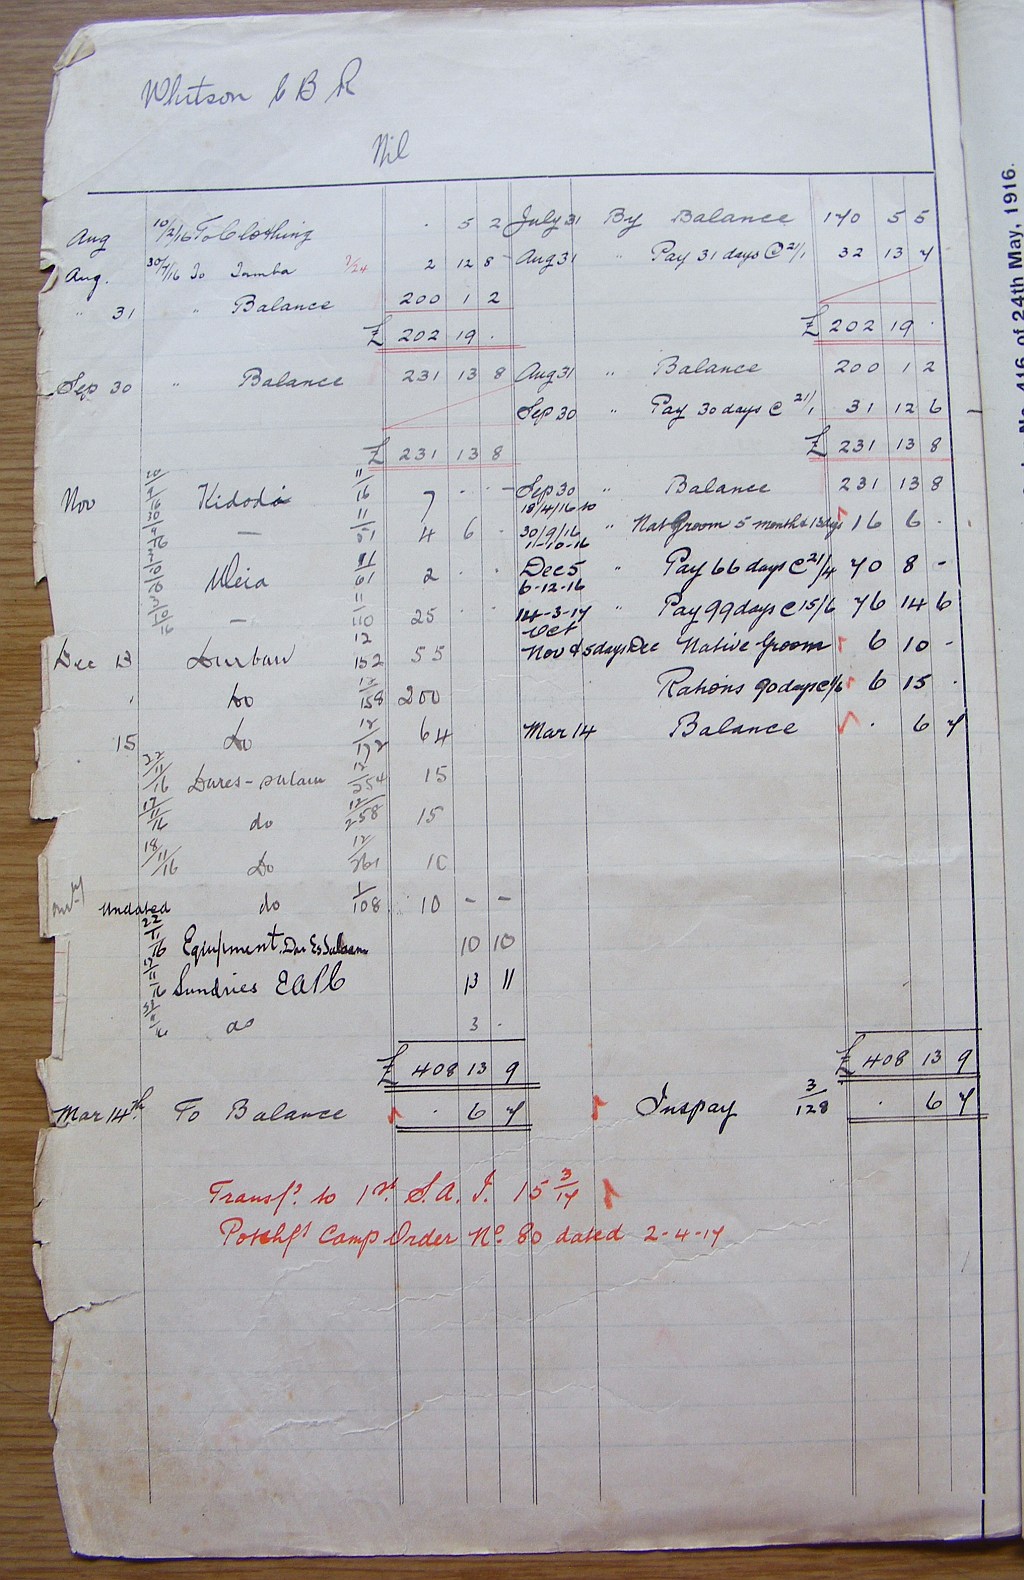 Whitson C B R
Nil
Aug 10/2/16 To Clothing . 5 2 July 31 By Balance 170 5 5
Aug. 30/7/16 To Iamba 7/24 2 12 8 Aug 31 " Pay 31 days @ 21/1 32 13 7
" 31 " Balance 200 1 2
£ 202 19 . £ 202 19 .
Sep 30 " Balance 231 13 8 Aug 31 " Balance 200 1 2
Sep 30 " Pay 30 days @ 21/1 31 12 6 -
£ 231 13 8 £ 231 13 8
Nov Kidodi 11/16 7 . . Sep 30 " Balance 231 13 8
18/4/16 to
— 4 6 . 30/9/16 " Nat Groom 5 months 13 days 16 6 .
11-10-16
61 2 . . Dec 5 " Pay 66 days @ 21/4 70 8 -
6-12-16
— 11/110 25 . . 14-3-17 " Pay 99 days @ 15/6 76 14 6
Oct
Dec 13 Durban 12/152 55 Nov & 5 days Dec Native Groom 6 10 -
" do 12/158 200 Rations 90 days @ 1/6 6 15 .
15 do 12/172 64 Mar 14 Balance . 6 7
22/11/16 Dares-salaam 12/254 15
17/11/16 do 12/258 15
18/11/16 do 12/261 10
Undated do 1/108 10 - -
22/11/16 Equipment. Dar Es Salaam 10 10
17/11/16 Sundries EAPC 13 11
do 3 .
£ 408 13 9 £ 408 13 9
Mar 14th To Balance . 6 7 Inspay 3/128 . 6 7
Transf'd to 1st S.A.I. 15 3/17
Potchfs Camp Order No. 80 dated 2-4-17
No. 416 of 24th May, 1916.